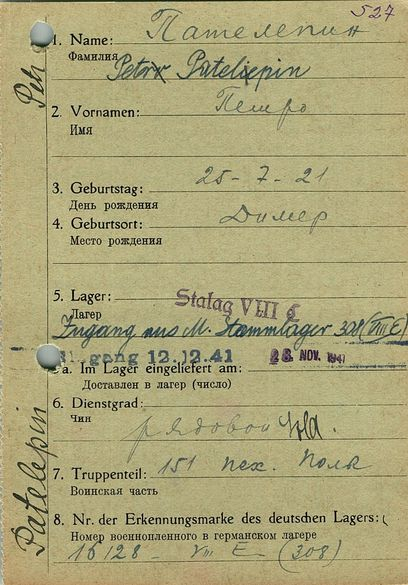 527
1. Name: Пателепин
Фамилия
Petro Patelepin
2. Vornamen: Петро
Имя
3. Geburtstag: 25-7-21
День рождения
4. Geburtsort: Димер
Место рождения
5. Lager: Stalag VIII C
Лагер
Zugang aus M. Stammlager 308 (VIII E)
gang 12.12.41 28. NOV. 1941
a. Im Lager eingeliefert am:
Доставлен в лагер (число)
6. Dienstgrad:
Чин
рядовой
7. Truppenteil: 151 пех. полк
Воинская часть
8. Nr. der Erkennungsmarke des deutschen Lagers:
Номер военнопленного в германском лагере
16128 - VIII E (308)
Patelepin Petr